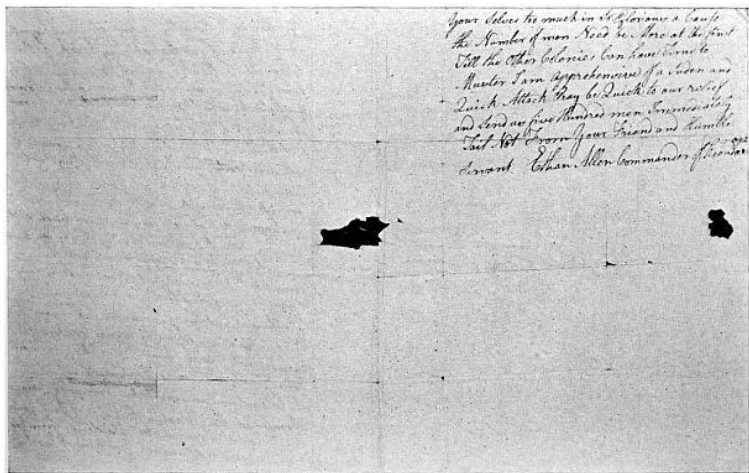 your Selves too much in So Glorious a Cause
the Number of men Need be More at the first
Till the Other Colonies Can have Time to
Muster I am apprehensive of a Suden and
Quick Attack Pray be Quick to our relief
and Send us five Hundred men Immediately
Fail Not From Your Friend and Humble
Servant Ethan Allen Commander of